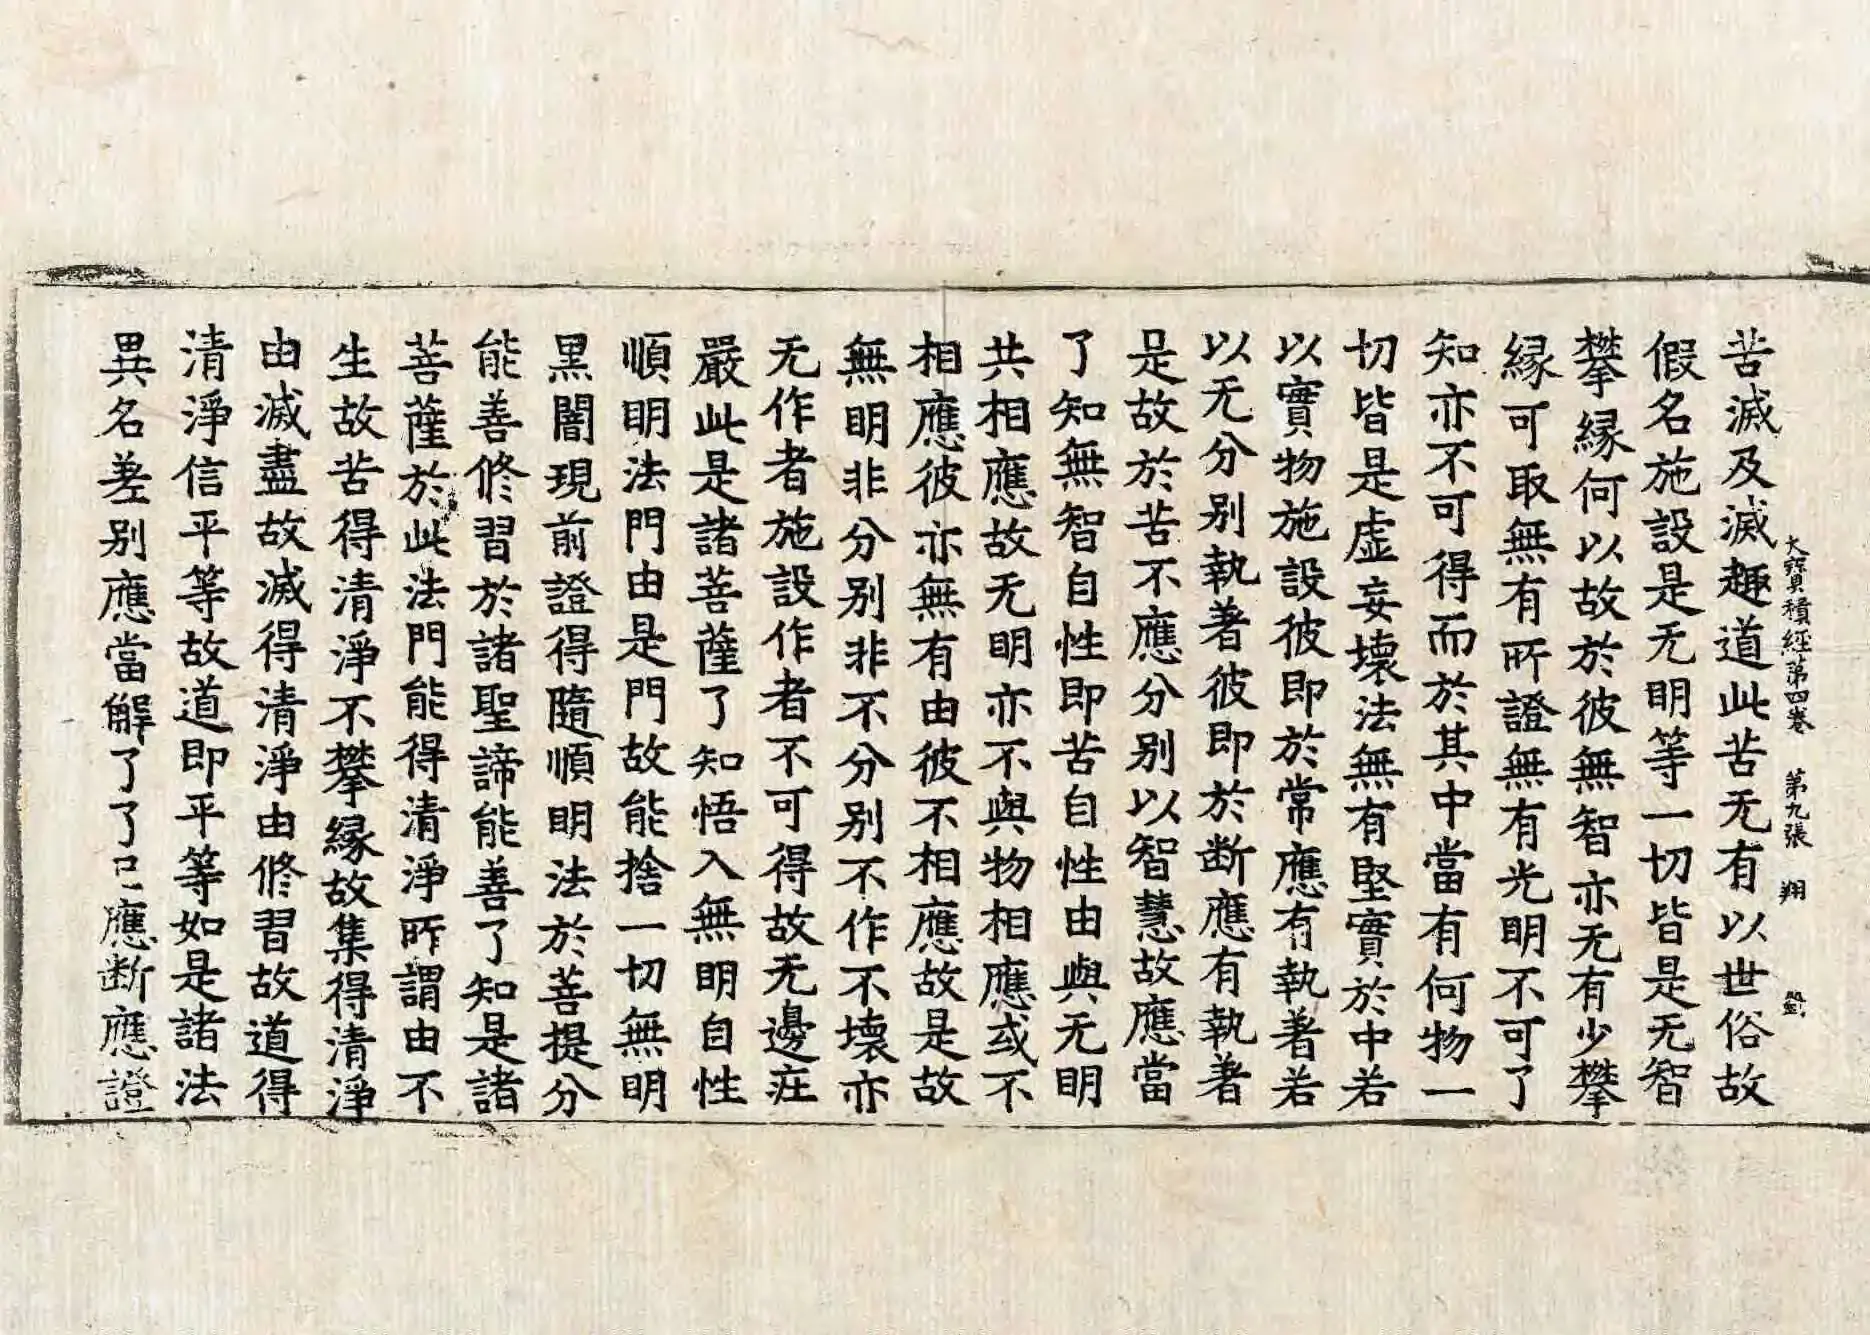 大寶積經第四卷 第九張 翔
苦滅及滅趣道此苦无有以世俗故
假名施設是无明等一切皆是无智
攀縁何以故於彼無智亦无有少攀
縁可取無有所證無有光明不可了
知亦不可得而於其中當有何物一
切皆是虚妄壞法無有堅實於中若
以實物施設彼即於常應有執著若
以无分别執著彼即於断應有執著
是故於苦不應分别以智慧故應當
了知無智自性即苦自性由與无明
共相應故无明亦不與物相應或不
相應彼亦無有由彼不相應故是故
無明非分别非不分别不作不壞亦
无作者施設作者不可得故无邊庄
嚴此是諸菩薩了知悟入無明自性
順明法門由是門故能捨一切無明
黒闇現前證得隨順明法於菩提分
能善修習於諸聖諦能善了知是諸
菩薩於此法門能得清淨所謂由不
生故苦得清淨不攀縁故集得清淨
由滅盡故滅得清淨由修習故道得
清淨信平等故道即平等如是諸法
異名差别應當解了了已應断應證